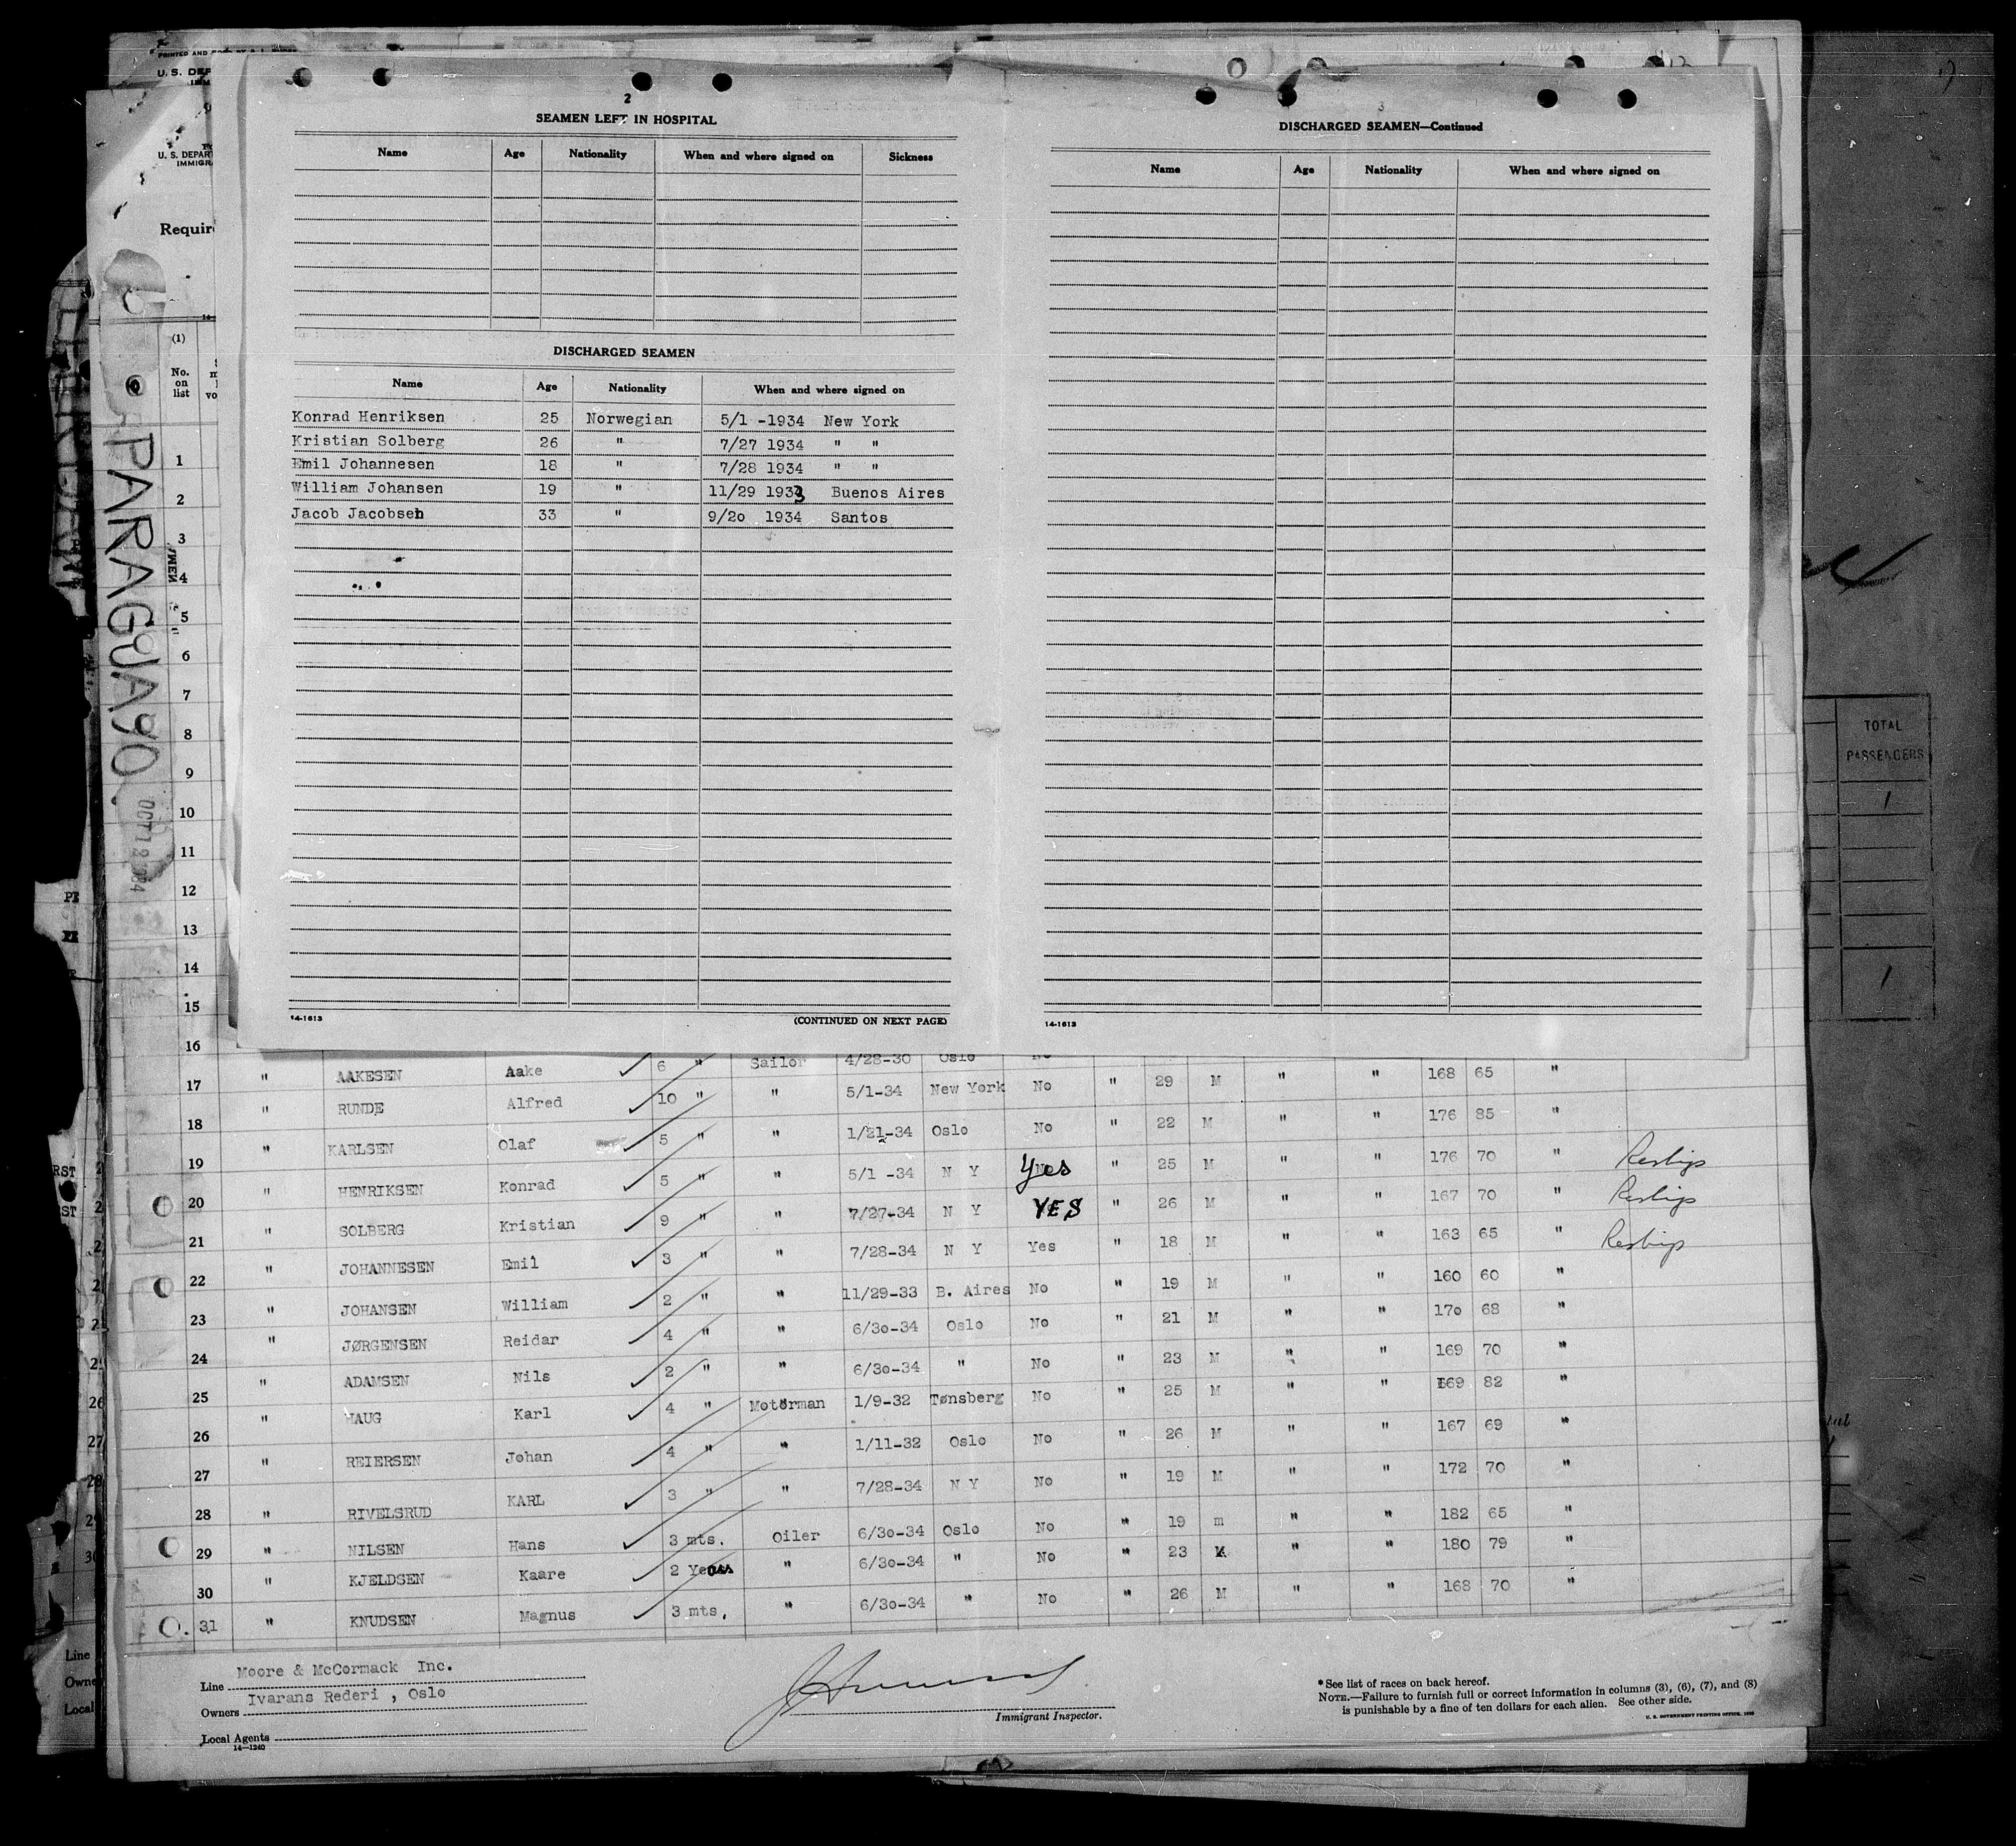 2
SEAMEN LEFT IN HOSPITAL
Name Age Nationality When and where signed on Sickness
DISCHARGED SEAMEN
Name Age Nationality When and where signed on
Konrad Henriksen 25 Norwegian 5/1 -1934 New York
Kristian Solberg 26 " 7/27 1934 " "
Emil Johannesen 18 " 7/28 1934 " "
William Johansen 19 " 11/29 1933 Buenos Aires
Jacob Jacobsen 33 " 9/20 1934 Santos
14-1613 (CONTINUED ON NEXT PAGE)
3
DISCHARGED SEAMEN—Continued
Name Age Nationality When and where signed on
14-1613
U. S. DEP
U. S. DEPAR
IMMIGR
Requir
(1)
No. on list
PARAGUAYO
OCT 12 1934
1
2
3
4
5
6
7
8
9
10
11
12
13
14
15
16 6 " Sailor 4/28-30 Oslo No
17 " AAKESEN Aake 10 " " 5/1-34 New York No " 29 M " " 168 65 "
18 " RUNDE Alfred 5 " " 1/21-34 Oslo No " 22 M " " 176 85 "
19 " KARLSEN Olaf 5 " " 5/1 -34 N Y Yes " 25 M " " 176 70 "
20 " HENRIKSEN Konrad 9 " " 7/27-34 N Y YES " 26 M " " 167 70 "
21 " SOLBERG Kristian 3 " " 7/28-34 N Y Yes " 18 M " " 163 65 "
22 " JOHANNESEN Emil 2 " " 11/29-33 B. Aires No " 19 M " " 160 60 "
23 " JOHANSEN William 4 " " 6/30-34 Oslo No " 21 M " " 170 68 "
24 " JØRGENSEN Reidar 2 " " 6/30-34 " No " 23 M " " 169 70 "
25 " ADAMSEN Nils 4 " Motorman 1/9-32 Tønsberg No " 25 M " " 169 82 "
26 " HAUG Karl 4 " " 1/11-32 Oslo No " 26 M " " 167 69 "
27 " REIERSEN Johan 3 " " 7/28-34 N Y No " 19 M " " 172 70 "
28 " RIVELSRUD KARL 3 mts. Oiler 6/30-34 Oslo No " 19 m " " 182 65 "
29 " NILSEN Hans 2 Years " 6/30-34 " No " 23 " " 180 79 "
30 " KJELDSEN Kaare 3 mts. " 6/30-34 " No " 26 M " " 168 70 "
31 " KNUDSEN Magnus
Line Moore & McCormack Inc.
Owners Ivarans Rederi , Oslo
Local Agents
14—1240
Immigrant Inspector.
*See list of races on back hereof.
NOTE.—Failure to furnish full or correct information in columns (3), (6), (7), and (8)
is punishable by a fine of ten dollars for each alien. See other side.
TOTAL
PASSENGERS
1
1
Line
Owne
Local